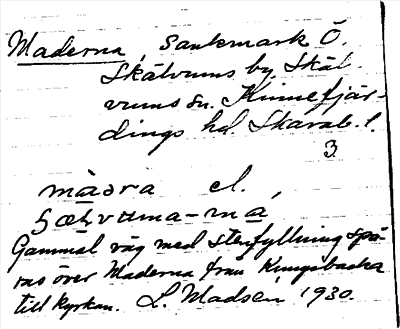 Maderna, sankmark Ö.
Skälvums by, Skäl-
vums sn. Kinnefjär-
dings hd. Skarab. l.
3
màdra el.
Gammal väg med stenfyllning spå-
ras över Maderna från Kungsbacka
till kyrkan. L. Madsén 1930.